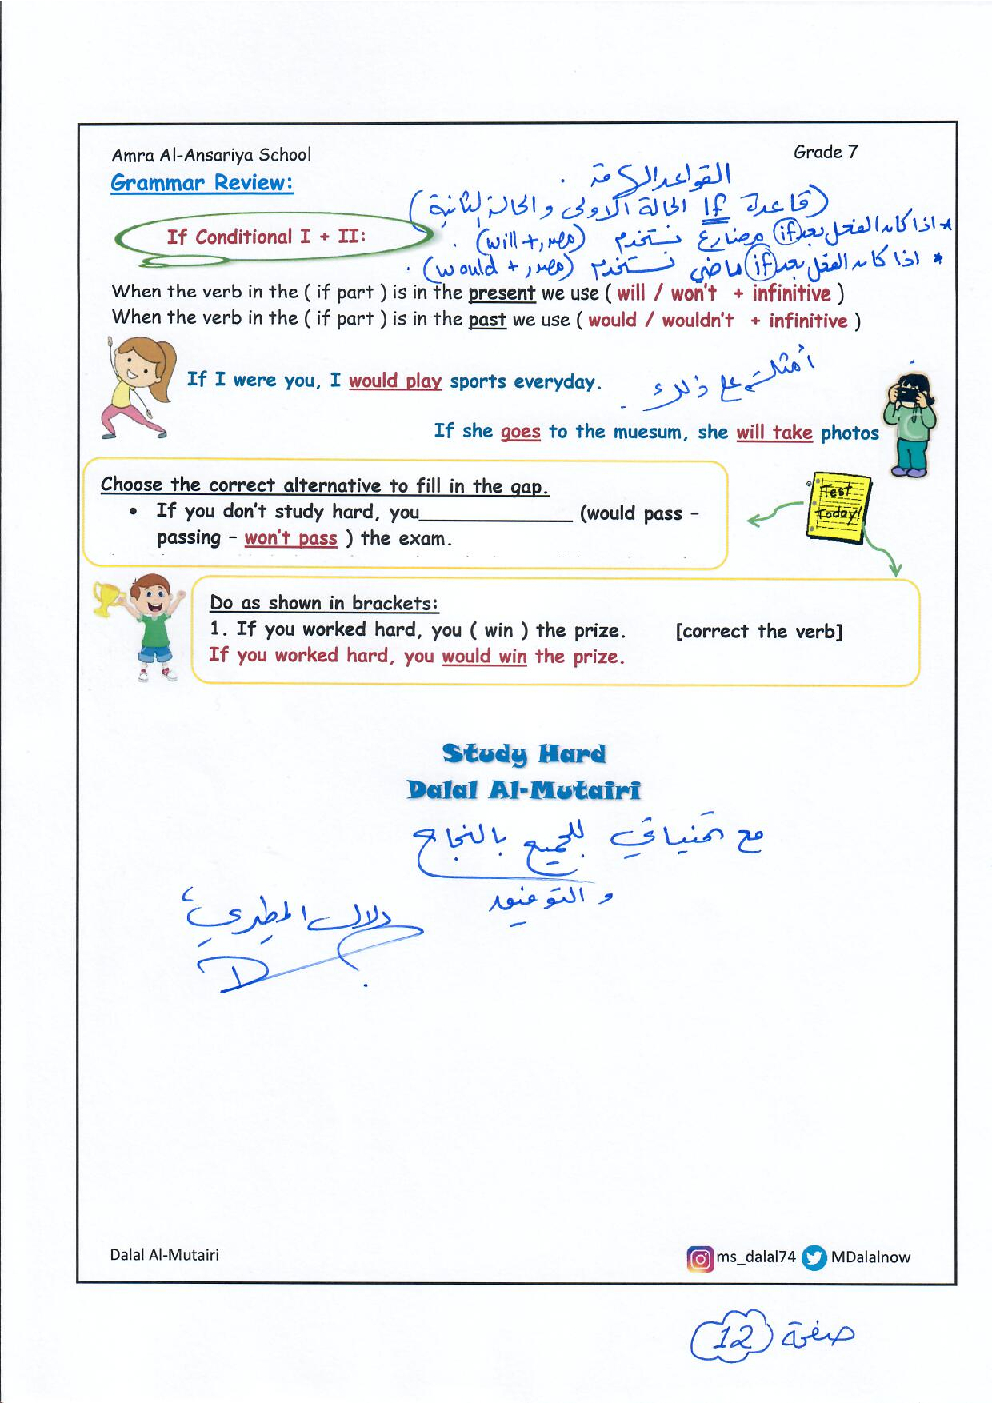 Amra Al-Ansariya School
Grade 7
Grammar Review:
القواعد الهامة .
(قاعدة If الحالة الأولى والحالة الثانية)
If Conditional I + II:
* اذا كان الفعل بعد if مضارع نستخدم (will + مصدر) .
* اذا كان الفعل بعد if ماضي نستخدم (would + مصدر) .
When the verb in the ( if part ) is in the present we use ( will / won't + infinitive )
When the verb in the ( if part ) is in the past we use ( would / wouldn't + infinitive )
أمثلة على ذلك .
If I were you, I would play sports everyday.
If she goes to the muesum, she will take photos
Choose the correct alternative to fill in the gap.
• If you don't study hard, you______________ (would pass –
passing – won't pass ) the exam.
Test
today!
Do as shown in brackets:
1. If you worked hard, you ( win ) the prize. [correct the verb]
If you worked hard, you would win the prize.
Study Hard
Dalal Al-Mutairi
مع تمنياتي للجميع بالنجاح
والتوفيق
دلال المطيري
Dalal Al-Mutairi
ms_dalal74 MDalalnow
صفحة 12